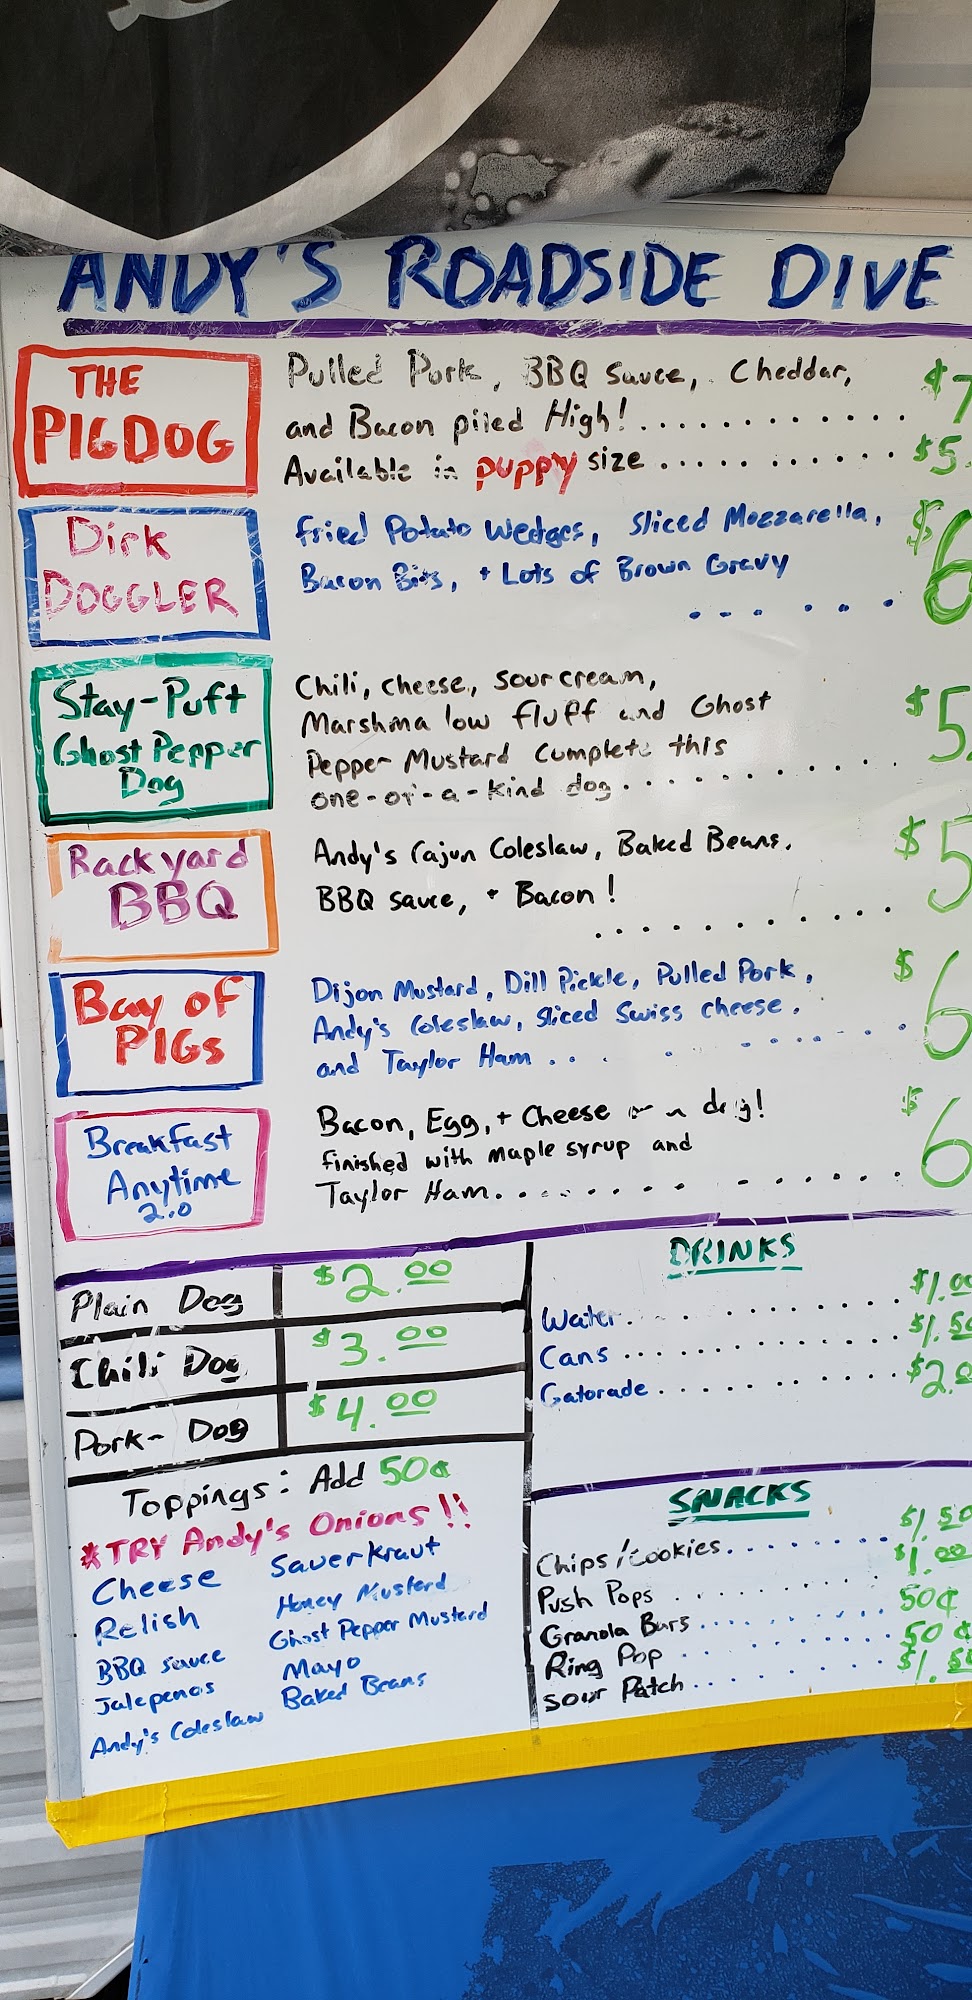 ANDY'S ROADSIDE DIVE
THE
PIGDOG
Pulled Pork, BBQ Sauce, Cheddar,
and Bacon piled High! . . . . . . . . . . . . $7
Available in puppy size . . . . . . . . . . $5.
Dirk
DOGGLER
Fried Potato Wedges, Sliced Mozzarella,
Bacon Bits, + Lots of Brown Gravy
. . . . . . $6
Stay-Puft
Ghost Pepper
Dog
Chili, cheese, sour cream,
Marshmalow fluff and Ghost
Pepper Mustard complete this
one-of-a-kind dog . . . . . . . . . . . $5.
Backyard
BBQ
Andy's Cajun Coleslaw, Baked Beans,
BBQ sauce, + Bacon!
. . . . . . . . . . . . $5
Bay of
PIGs
Dijon Mustard, Dill Pickle, Pulled Pork,
Andy's Coleslaw, Sliced Swiss cheese,
and Taylor Ham . . . . . . . . . . . $6
Breakfast
Anytime
2.0
Bacon, Egg, + Cheese on a dog!
finished with maple syrup and
Taylor Ham. . . . . . . . . . . . . . . $6
Plain Dog $2.00
Chili Dog $3.00
Pork-Dog $4.00
Toppings: Add 50¢
*TRY Andy's Onions!!
Cheese Sauerkraut
Relish Honey Mustard
BBQ sauce Ghost Pepper Mustard
Jalepenos Mayo
Andy's Coleslaw Baked Beans
DRINKS
Water . . . . . . . . . . . . $1.00
Cans . . . . . . . . . . . . $1.50
Gatorade . . . . . . . . . . . $2.0
SNACKS
Chips/Cookies . . . . . . . . $1.50
Push Pops . . . . . . . . . . $1.00
Granola Bars . . . . . . . . . 50¢
Ring Pop . . . . . . . . . . 50¢
Sour Patch . . . . . . . . . $1.50